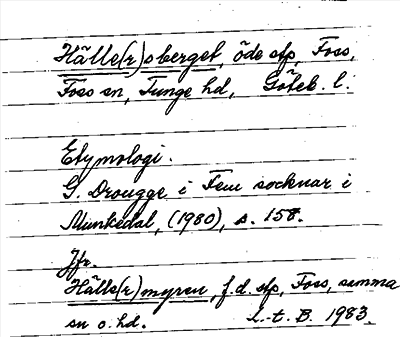 Hälle(r)sberget, öde slp, Foss,
Foss sn, Tunge hd, Göteb. l.
Etymologi.
G. Drougge i Fem socknar i
Munkedal, (1980), s. 158.
Jfr.
Hälle(r)myren, f.d. slp, Foss, samma
sn o. hd. L-t. B. 1983.